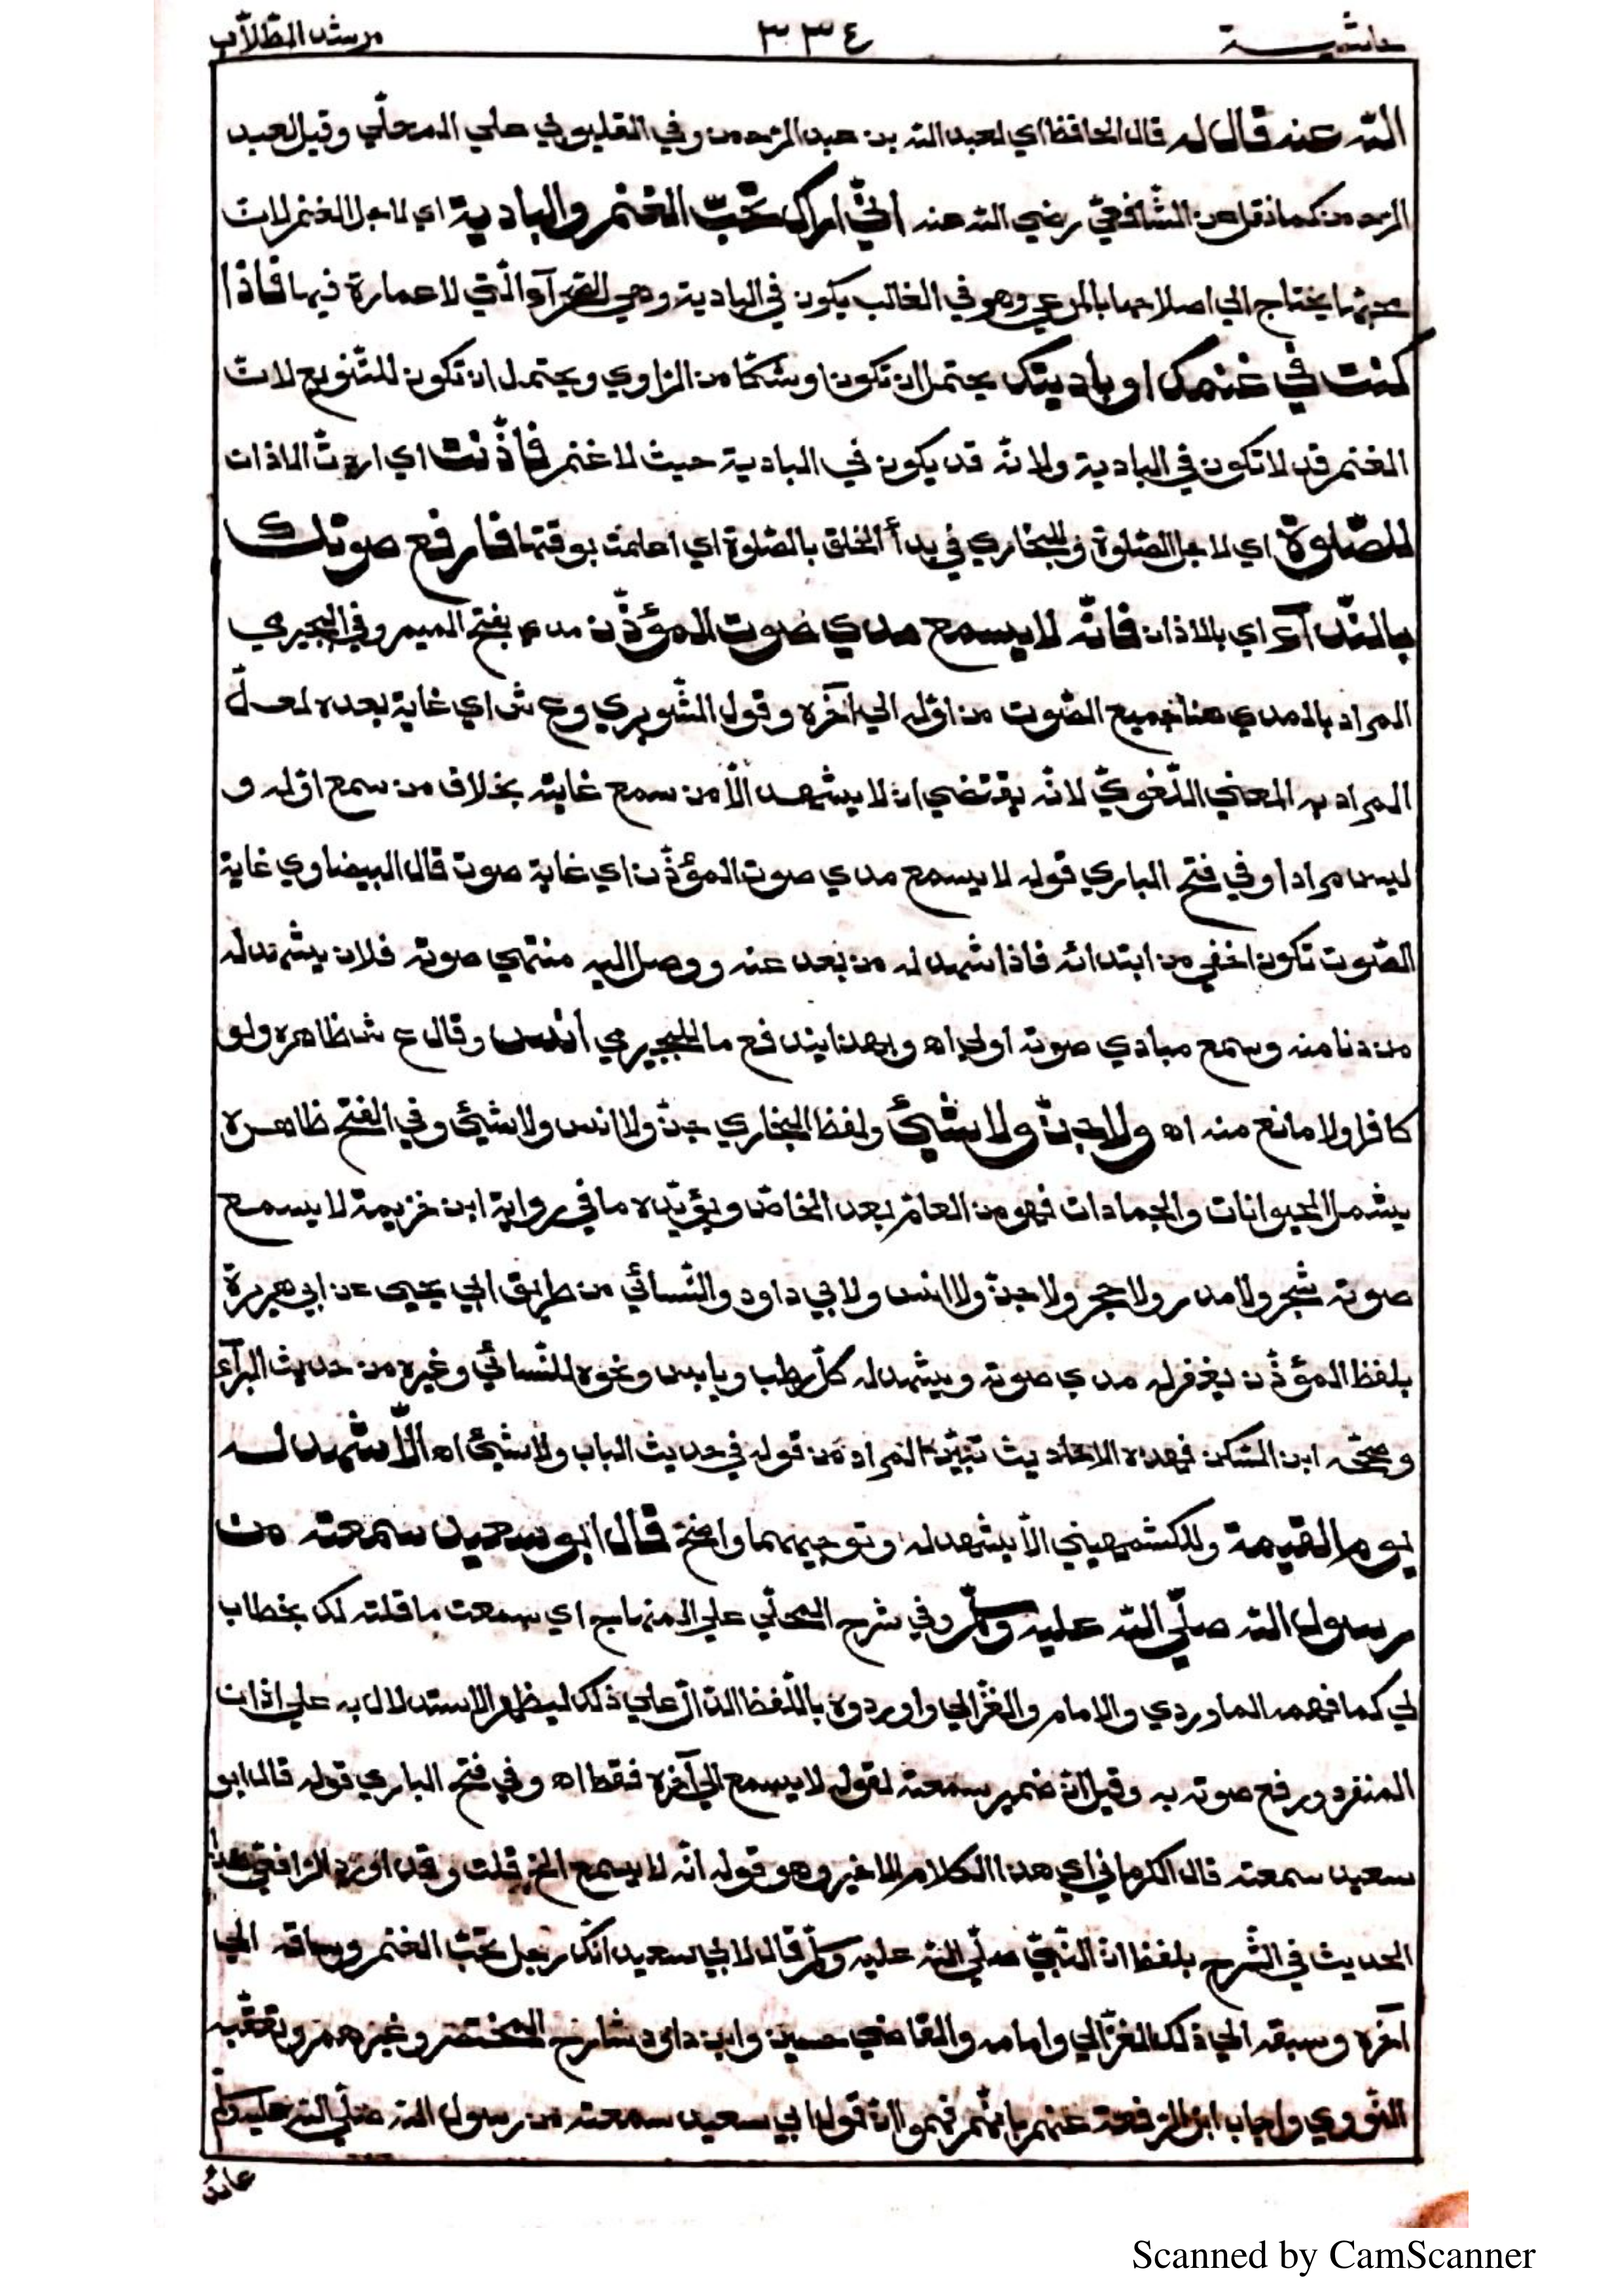 حاشية ٣٣٤ مرشد الطّلّاب
اللّه عنه قال له قال الحافظ اي لعبد اللّه بن عبد الرّحمن وفي القليوبي علي المحلّي وقيل لعبد
الرّحمن كما نقل عن الشّافعيّ رضي اللّه عنه انّي اراك تحبّ الغنم والبادية اي لاجل الغنم لانّ
محبّتها يحتاج الي اصلاحها بالمرعي وهو في الغالب يكون في البادية وهي الصّحرآء الّتي لا عمارة فيها فاذا
كنت في غنمك او باديتك يحتمل ان تكون او شكّا من الرّاوي ويحتمل ان تكون للتّنويع لانّ
الغنم قد لا تكون في البادية ولانّه قد يكون في البادية حيث لا غنم فأذّنت اي اردتّ الاذان
للصّلوة اي لاجل الصّلوة وللبخاري في بدأ الخلق بالصّلوة اي اعلمت بوقتها فارفع صوتك
بالنّدآء اي بالاذان فانّه لا يسمع مدي صوت المؤذّن مدي بفتح الميم وفي البجيرمي
المراد بالمدي هنا جميع الصّوت من اوّله الي آخره وقول الشّوبري وع ش اي غاية بعده لعلّ
المراد به المعني اللّغويّ لانّه يقتضي ان لا يشهد الّا من سمع غايته بخلاف من سمع اوّله و
ليس مرادا وفي فتح الباري قوله لا يسمع مدي صوت المؤذّن اي غاية صوت قال البيضاوي غاية
الصّوت تكون اخفي من ابتدائه فاذا شهد له من بعد عنه ووصل اليه منتهي صوته فلان يشهد له
من دنا منه وسمع مبادي صوته اولي اه وبهذا يندفع ما للبجيرمي انس وقال ع ش ظاهره ولو
كافرا ولا مانع منه اه ولا جنّ ولا شيئ ولفظ البخاري جنّ ولا انس ولا شيئ وفي الفتح ظاهره
يشمل الحيوانات والجمادات فهو من العامّ بعد الخاصّ ويؤيّده ما في رواية ابن خزيمة لا يسمع
صوته شجر ولا مدر ولا حجر ولا جنّ ولا انس ولابي داود والنّسائي من طريق ابي يحيي عن ابي هريرة
بلفظ المؤذّن يغفر له مدي صوته ويشهد له كلّ رطب ويابس ونحوه للنّسائي وغيره من حديث البرآء
وصحّحه ابن السّكن فهذه الاحاديث تبيّن المراد من قوله في حديث الباب ولا شيئ اه الّا شهد له
يوم القيمة وللكشميهيني الّا يشهد له وتوجيههما واضح قال ابو سعيد سمعته من
رسول اللّه صلّي اللّه عليه وسلّم وفي شرح المحلّي علي المنهاج اي سمعت ما قلته لك بخطاب
لي كما فهمه الماوردي والامام والغزّالي واوردوه باللّفظ الدّالّ علي ذلك ليظهر الاستدلال به علي اذان
المنفرد ورفع صوته به وقيل انّ ضمير سمعته لقوله لا يسمع الي آخره فقط اه وفي فتح الباري قوله قال ابو
سعيد سمعته قال الكرماني اي هذا الكلام الاخير وهو قوله انّه لا يسمع الخ قلت وقد اورد الرّافعي هذا
الحديث في الشّرح بلفظ انّ النّبيّ صلّي اللّه عليه وسلّم قال لابي سعيد انّك رجل تحبّ الغنم وساقه الي
آخره وسبقه الي ذلك الغزّالي وامامه والقاضي حسين وابن داود شارح المختصر وغيرهم وتعقّبه
النّووي واجاب ابن الرّفعة عنهم بانّهم فهموا انّ قول ابي سعيد سمعته من رسول اللّه صلّي اللّه عليه وسلّم
عائدٌ
Scanned by CamScanner